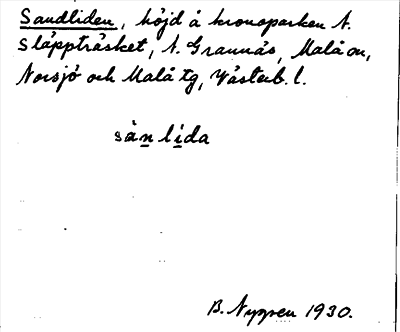 Sandliden, höjd å kronoparken N.
Släppträsket, N. Grannäs, Malå sn,
Norsjö och Malå tg, Västerb. l.
sànlida
B. Nygren 1930.